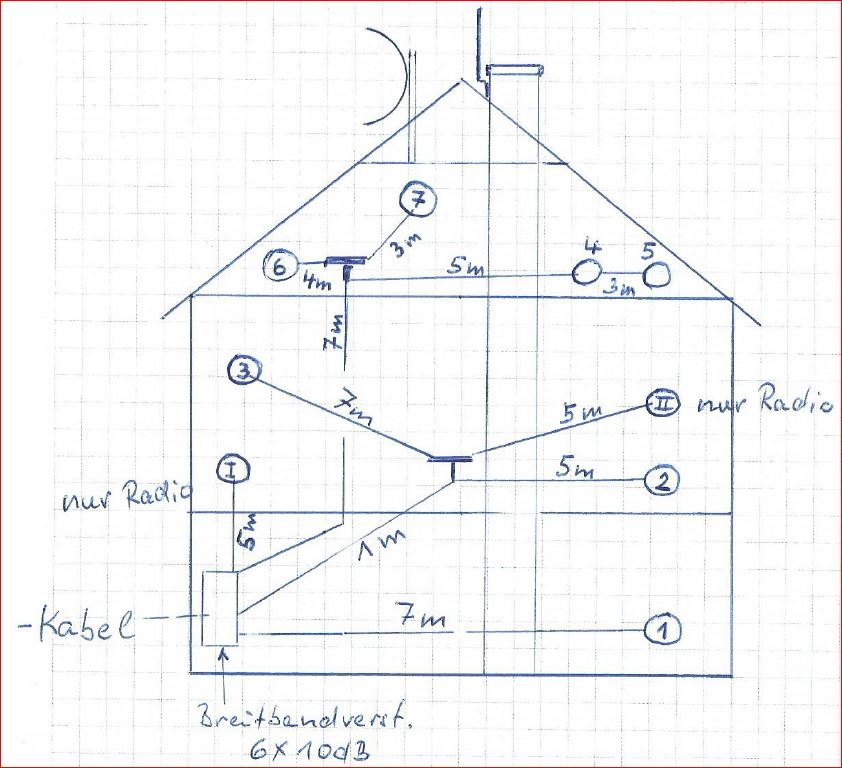 7
3m
6
4m
5m
4
5
3m
7m
3
7m
5m
II
nur Radio
I
5m
2
nur Radio
5m
1m
-Kabel
7m
1
Breitbandverst.
6x10dB